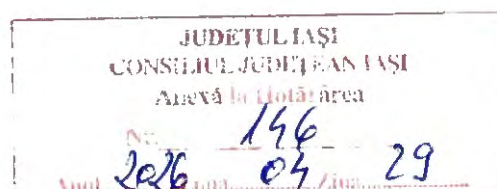 JUDEȚUL IAȘI
CONSILIUL JUDEȚEAN IAȘI
Anexă la Hotărârea
Nr. 146
Anul 2026 Luna 04 Ziua 29